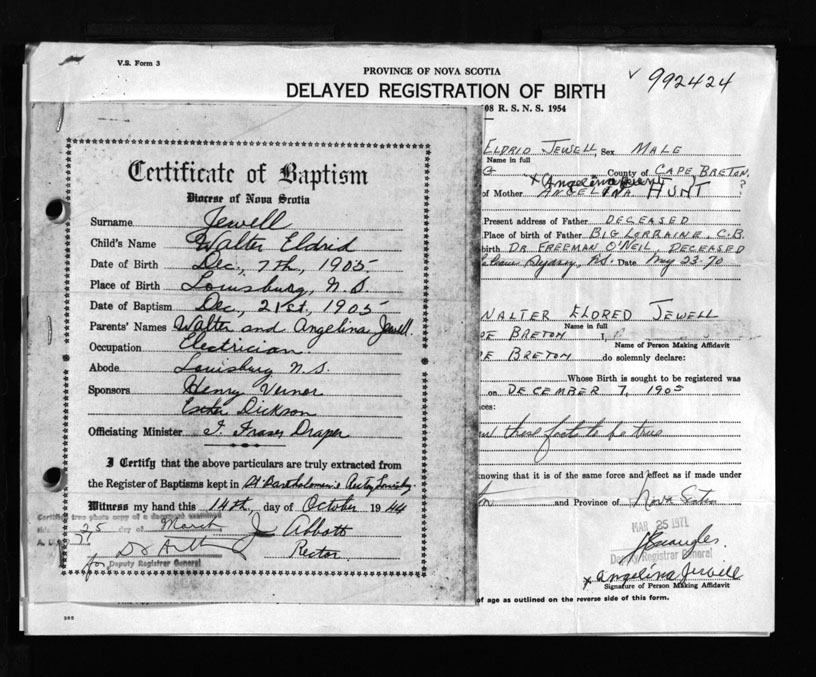 V.S. Form 3
PROVINCE OF NOVA SCOTIA
992424
DELAYED REGISTRATION OF BIRTH
08 R. S. N. S. 1954
Certificate of Baptism
Diocese of Nova Scotia
Surname Jewell
Child's Name Walter Eldrid
Date of Birth Dec., 7th, 1905.
Place of Birth Louisburg, N.S.
Date of Baptism Dec, 21st, 1905
Parents' Names Walter and Angelina Jewell.
Occupation Electrician.
Abode Louisburg N.S.
Sponsors Henry Verner
Dickson
Officiating Minister T. Fraser Draper
I Certify that the above particulars are truly extracted from
the Register of Baptisms kept in St Bartholomew's
Witness my hand this 14th, day of October 1944
Abbott
Rector.
Certified true photo copy of a document examined
this 25 day of March
A. D. 71
for Deputy Registrar General
ELDRID JEWELL, Sex MALE
Name in full
County of CAPE BRETON.
x Angelina
of Mother ANGELINA HUNT ?
Present address of Father DECEASED
Place of birth of Father BIG LORRAINE, C.B.
birth DR FREEMAN O'NEIL, DECEASED
Sydney, N.S. Date May 23-70
WALTER ELDRED JEWELL
Name in full
PE BRETON I,
Name of Person Making Affidavit
PE BRETON do solemnly declare:
Whose Birth is sought to be registered was
on DECEMBER 7, 1905
ces:
these facts to be true
knowing that it is of the same force and effect as if made under
and Province of Nova Scotia
MAR 25 1971
Deputy Registrar General
x Angelina Jewell
Signature of Person Making Affidavit
of age as outlined on the reverse side of this form.